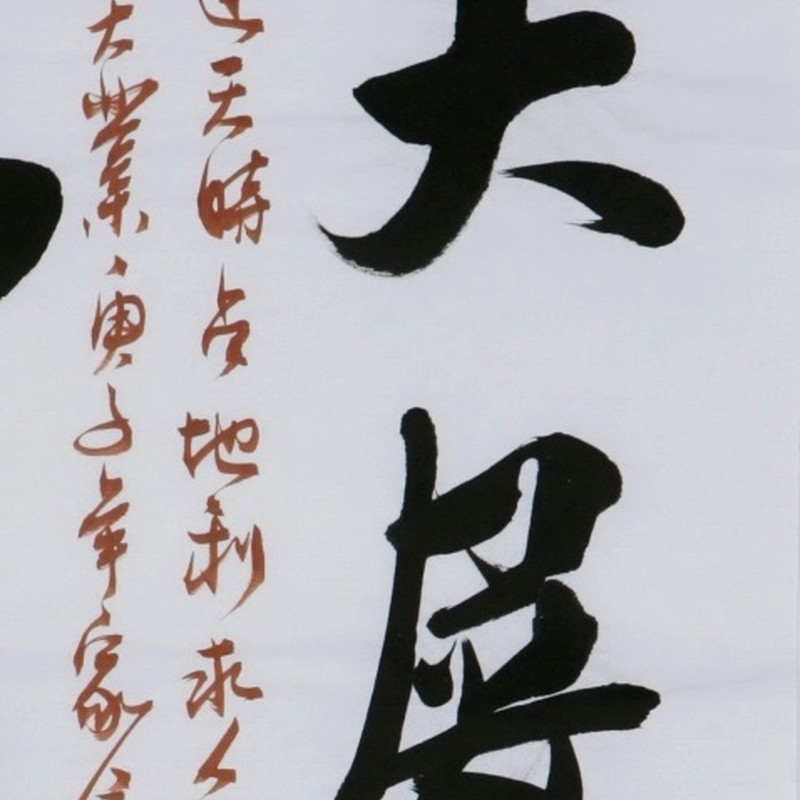 大展
天時占地利求人
大業庚子年家